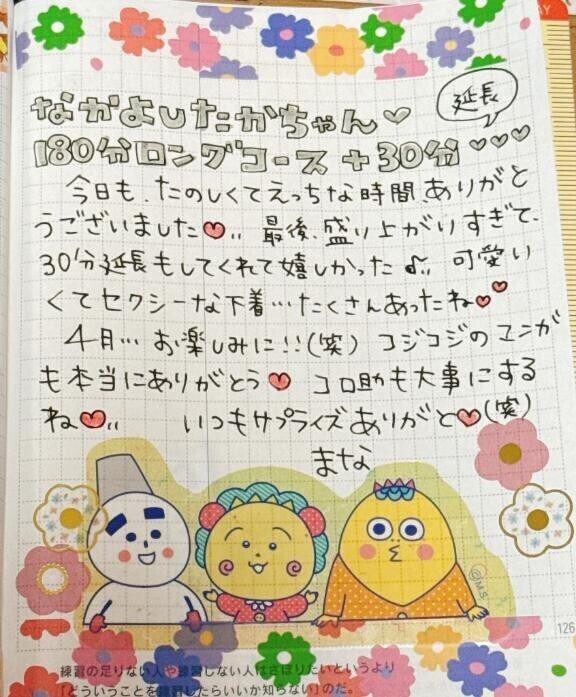 延長
なかよしたかちゃん♡
180分ロングコース+30分♡♡♡
今日も、たのしくてえっちな時間、ありがと
うございました♥.. 最後、盛り上がりすぎて、
30分延長もしてくれて嬉しかった♪.. 可愛い
くてセクシーな下着…たくさんあったね♥♥
4月… お楽しみに!!(笑) コジコジのマンガ
も本当にありがとう♥ コロ助も大事にする
ね♥.. いつもサプライズありがと♥(笑)
まな
©M.S
126
練習の足りない人や練習しない人はさぼりたいというより
「どういうことを練習したらいいか知らない」のだ。